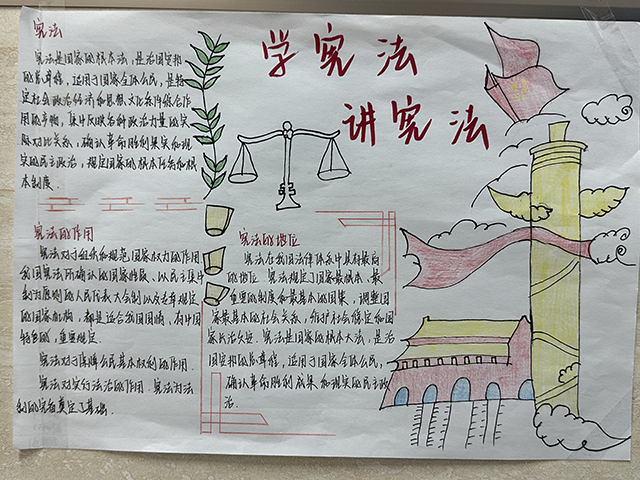 学宪法
讲宪法
宪法
宪法是国家的根本法，是治国安邦
的总章程，适用于国家全体公民，是特
定社会政治经济和思想文化条件综合作
用的产物，集中反映各种政治力量的实
际对比关系，确认革命胜利果实和现
实的民主政治，规定国家的根本任务和根
本制度．
宪法的作用
宪法对于组织和规范国家权力的作用
我国宪法所确认的国家性质、以民主集中
制为原则的人民代表大会制以及宪章规定
的国家机构，都是适合我国国情，有中国
特色的，重要规定．
宪法对于保障公民基本权利的作用．
宪法对实行法治的作用．宪法为法
制的完善奠定了基础．
宪法的地位
宪法在我国法律体系中具有最高
的地位．宪法规定了国家最根本、最
重要的制度和最基本的国策，调整国
家最基本的社会关系，维护社会稳定和国
家长治久安．宪法是国家的根本大法，是治
国安邦的总章程，适用于国家全体公民，
确认革命胜利成果和现实的民主政
治．